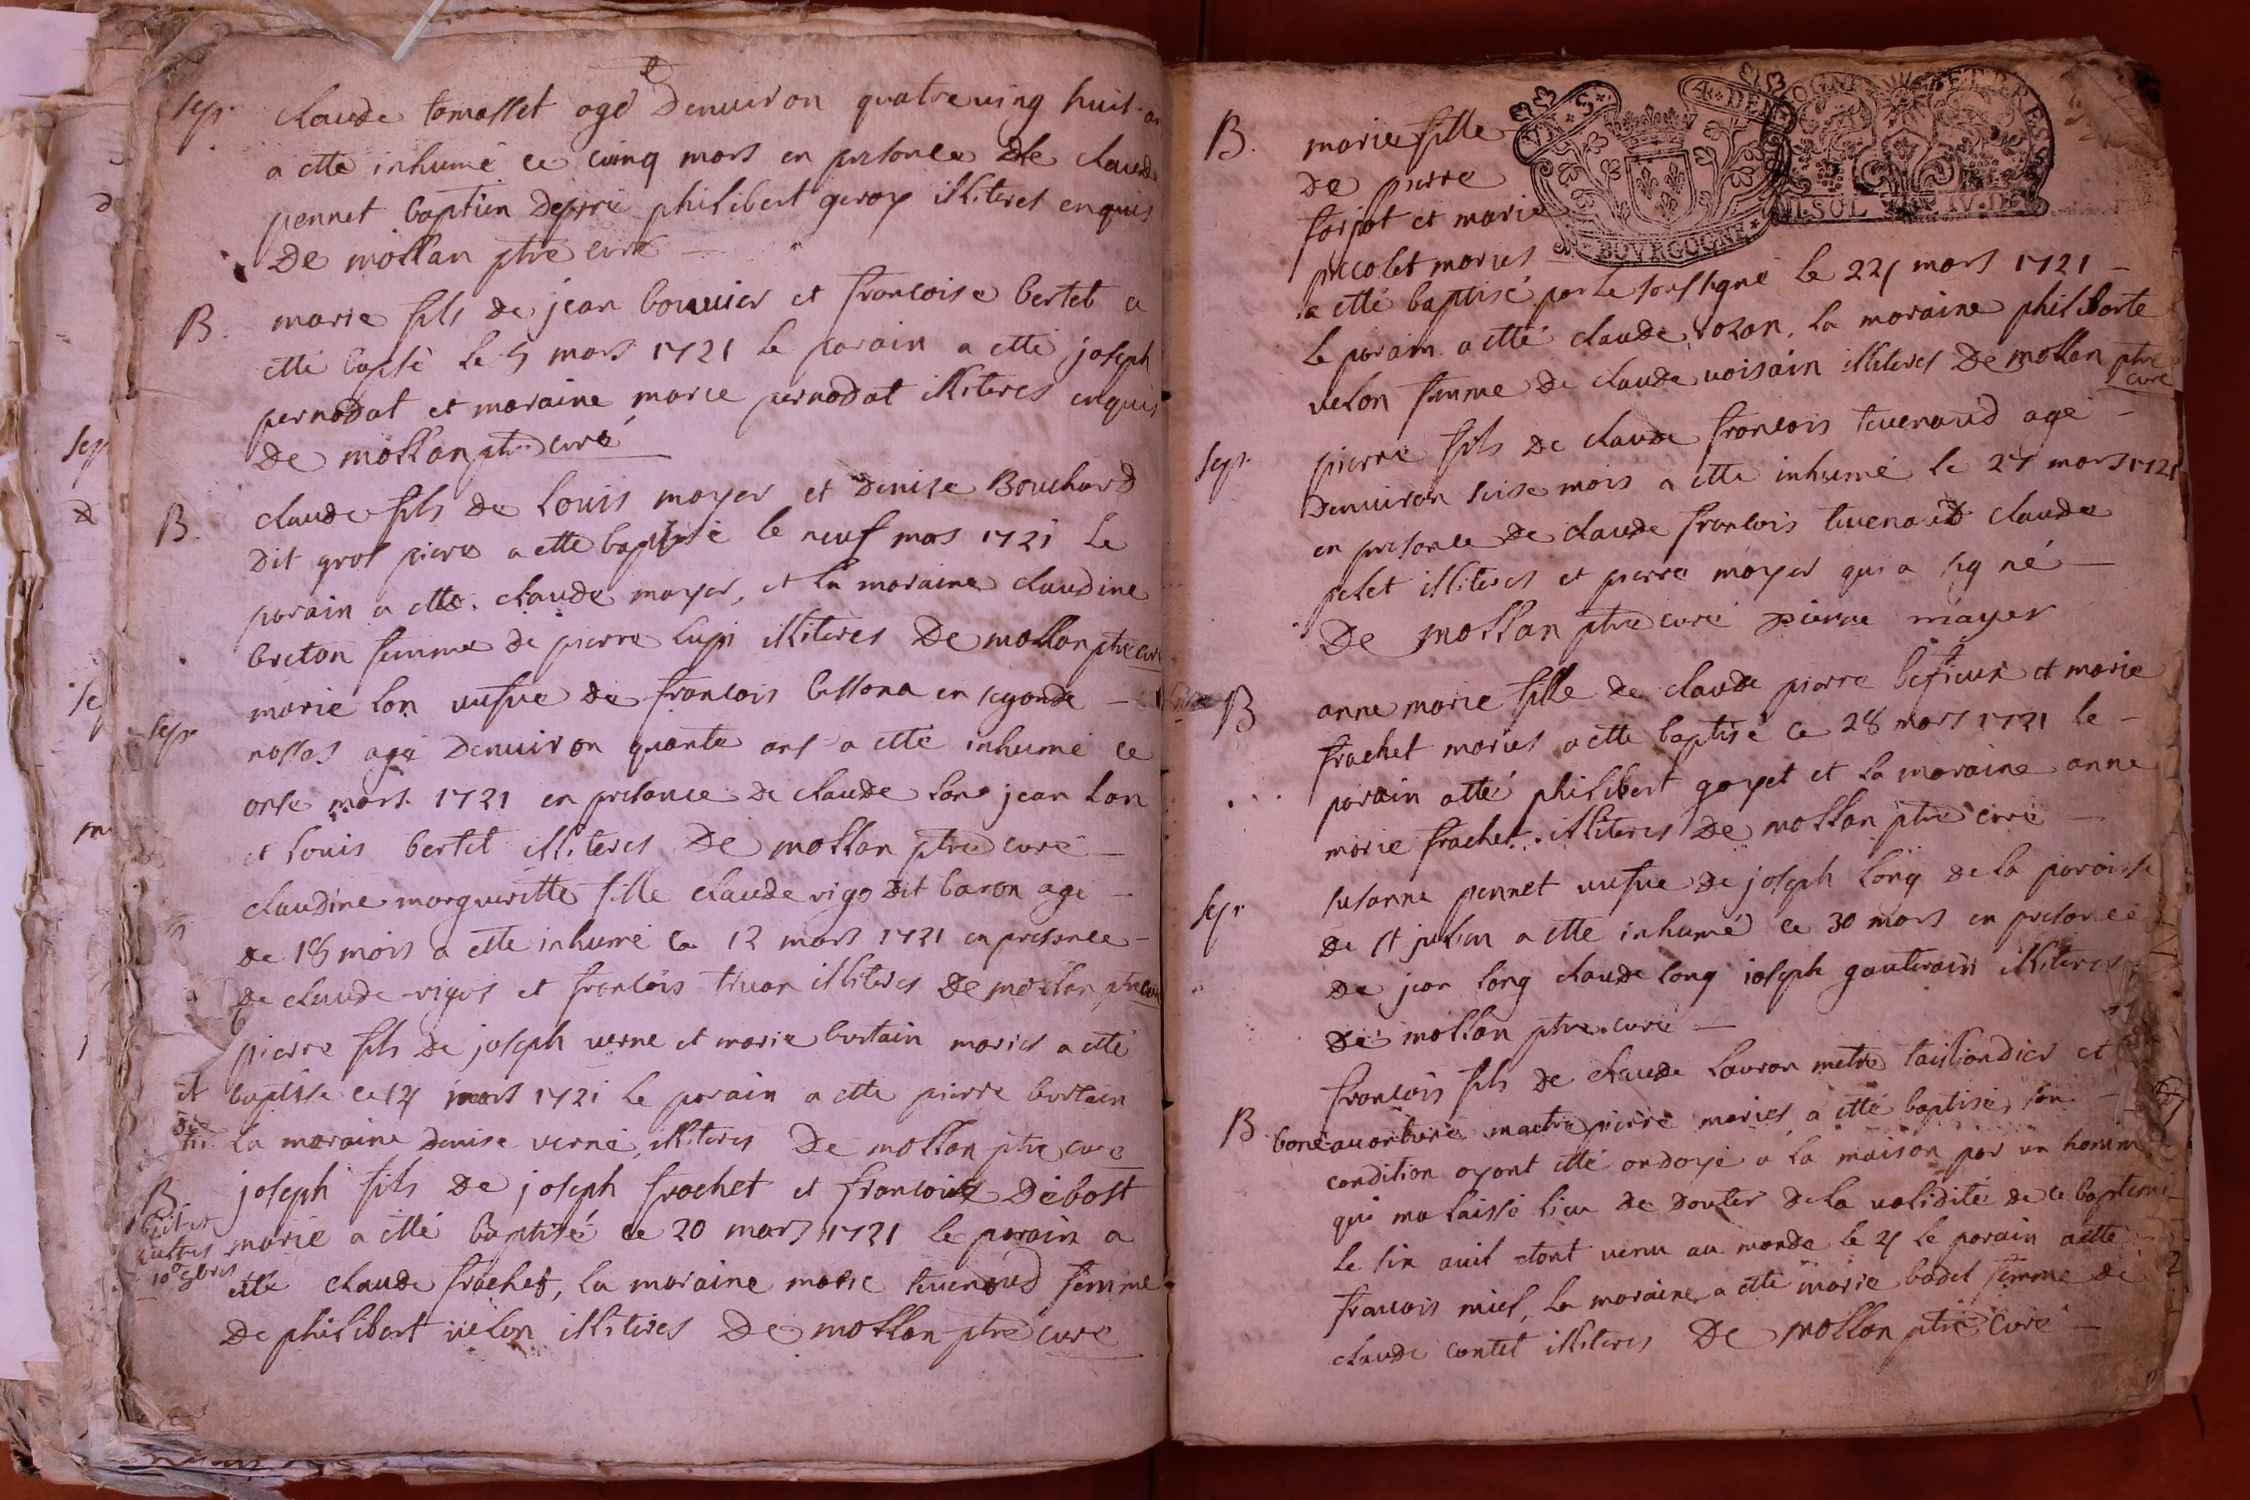 sep. claude tomasset agé denuiron quatreuing huit an
a etté inhumé ce cuinq mars en presence de claude
pennet baptien philibert geroy illiteres enquis
De mollan ptre curé
B. marie fils de jean bouuier et francoise bertet a
etté le 5 mars 1721 le parain a etté joseph
pernodat et maraine marie pernodat illiteres enquis
De mollan ptre curé
B. claude fils de Louis moyer et denise Bouchard
dit gros piere a etté baptisé le neuf mars 1721 Le
parain a etté claude moyer, et la maraine claudine
breton femme de pierre lupi illiteres De mollan ptre curé
marie lon uefue de francois bessona en segonde
sepr nosses agé denuiron quarante ans a etté inhumé ce
onse mars 1721 en presance de claude lon jean lon
et louis bertet illiteres De mollan ptre curé
claudine margueritte fille claude rigo dit baron agé
de 18 mois a etté inhumé ce 12 mars 1721 en presence
de claude rigos et francois truon illiteres De mollan ptre curé
pierre fils de joseph uerne et marie burtain mariés a etté
baptise ce 14 mars 1721 le parain a etté pierre burtain
la maraine denise verne illiteres De mollan ptre curé
B. joseph fils de joseph frachet et francoise Debost
marié a etté baptisé ce 20 mars 1721 le parain a
etté claude frachet, la maraine marie teuenaud femme
De philibert uelon illiteres De mollan ptre curé
B. marie fille
VN SOL 4 DEN
BOVRGOGNE
SOL IV.D
de pierre
forjot et marie
piccolet mariés
a etté baptisé par le soussigné le 24 mars 1721
le parain a etté claude rozan, la maraine philiberte
uelon femme de claude uoisain illiteres De mollan ptre
curé
sepr pierre fils de claude francois teuenaud agé
denuiron seise mois a etté inhumé le 27 mars 1721
en presence de claude francois teuenaud claude
pelet illiteres et pierre moyer qui a signé
De mollan ptre curé pierre mayer
B anne marie fille de claude pierre et marie
frachet mariés a etté baptisé ce 28 mars 1721 le
parain atté philibert goyet et la maraine anne
marie frachet illiteres De mollan ptre curé
sepr susanne pennet uefue de joseph long de la paroisse
de st julien a etté inhumé ce 30 mars en presence
de jean long claude long ioseph gauterain illiteres
De mollan ptre curé
francois fils de claude lauron metre taillandier et
B bonéauanture mactre pierre mariés a etté baptisé son
condition ayant etté ondoyé a la maison par un homme
qui ma laissé lieu de douter de la ualidité de ce bapteme
le sin auil etant uenu au monde le 4 le parain aetté
francois miel, la maraine a etté marie badet femme de
claude contet illiteres De mollan ptre curé